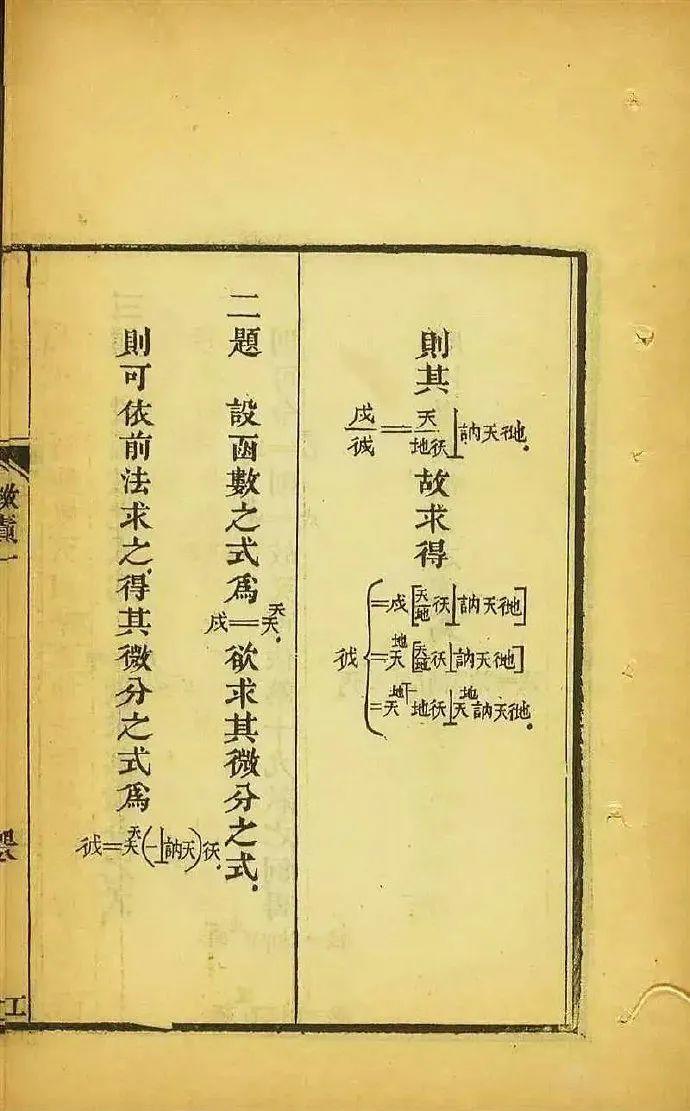 則其
戍/𢓍＝天/地彳天⊥訥天彳地。
故求得
彳戍＝戍[天/地彳天⊥訥天彳地]
＝天^地[天/地彳天⊥訥天彳地]
＝天^地丅一地彳天⊥天^地訥天彳地。
二題　設函數之式爲戍＝天^天。欲求其微分之式。
則可依前法求之，得其微分之式爲彳戍＝天^天(一⊥訥天)彳天。
微積一